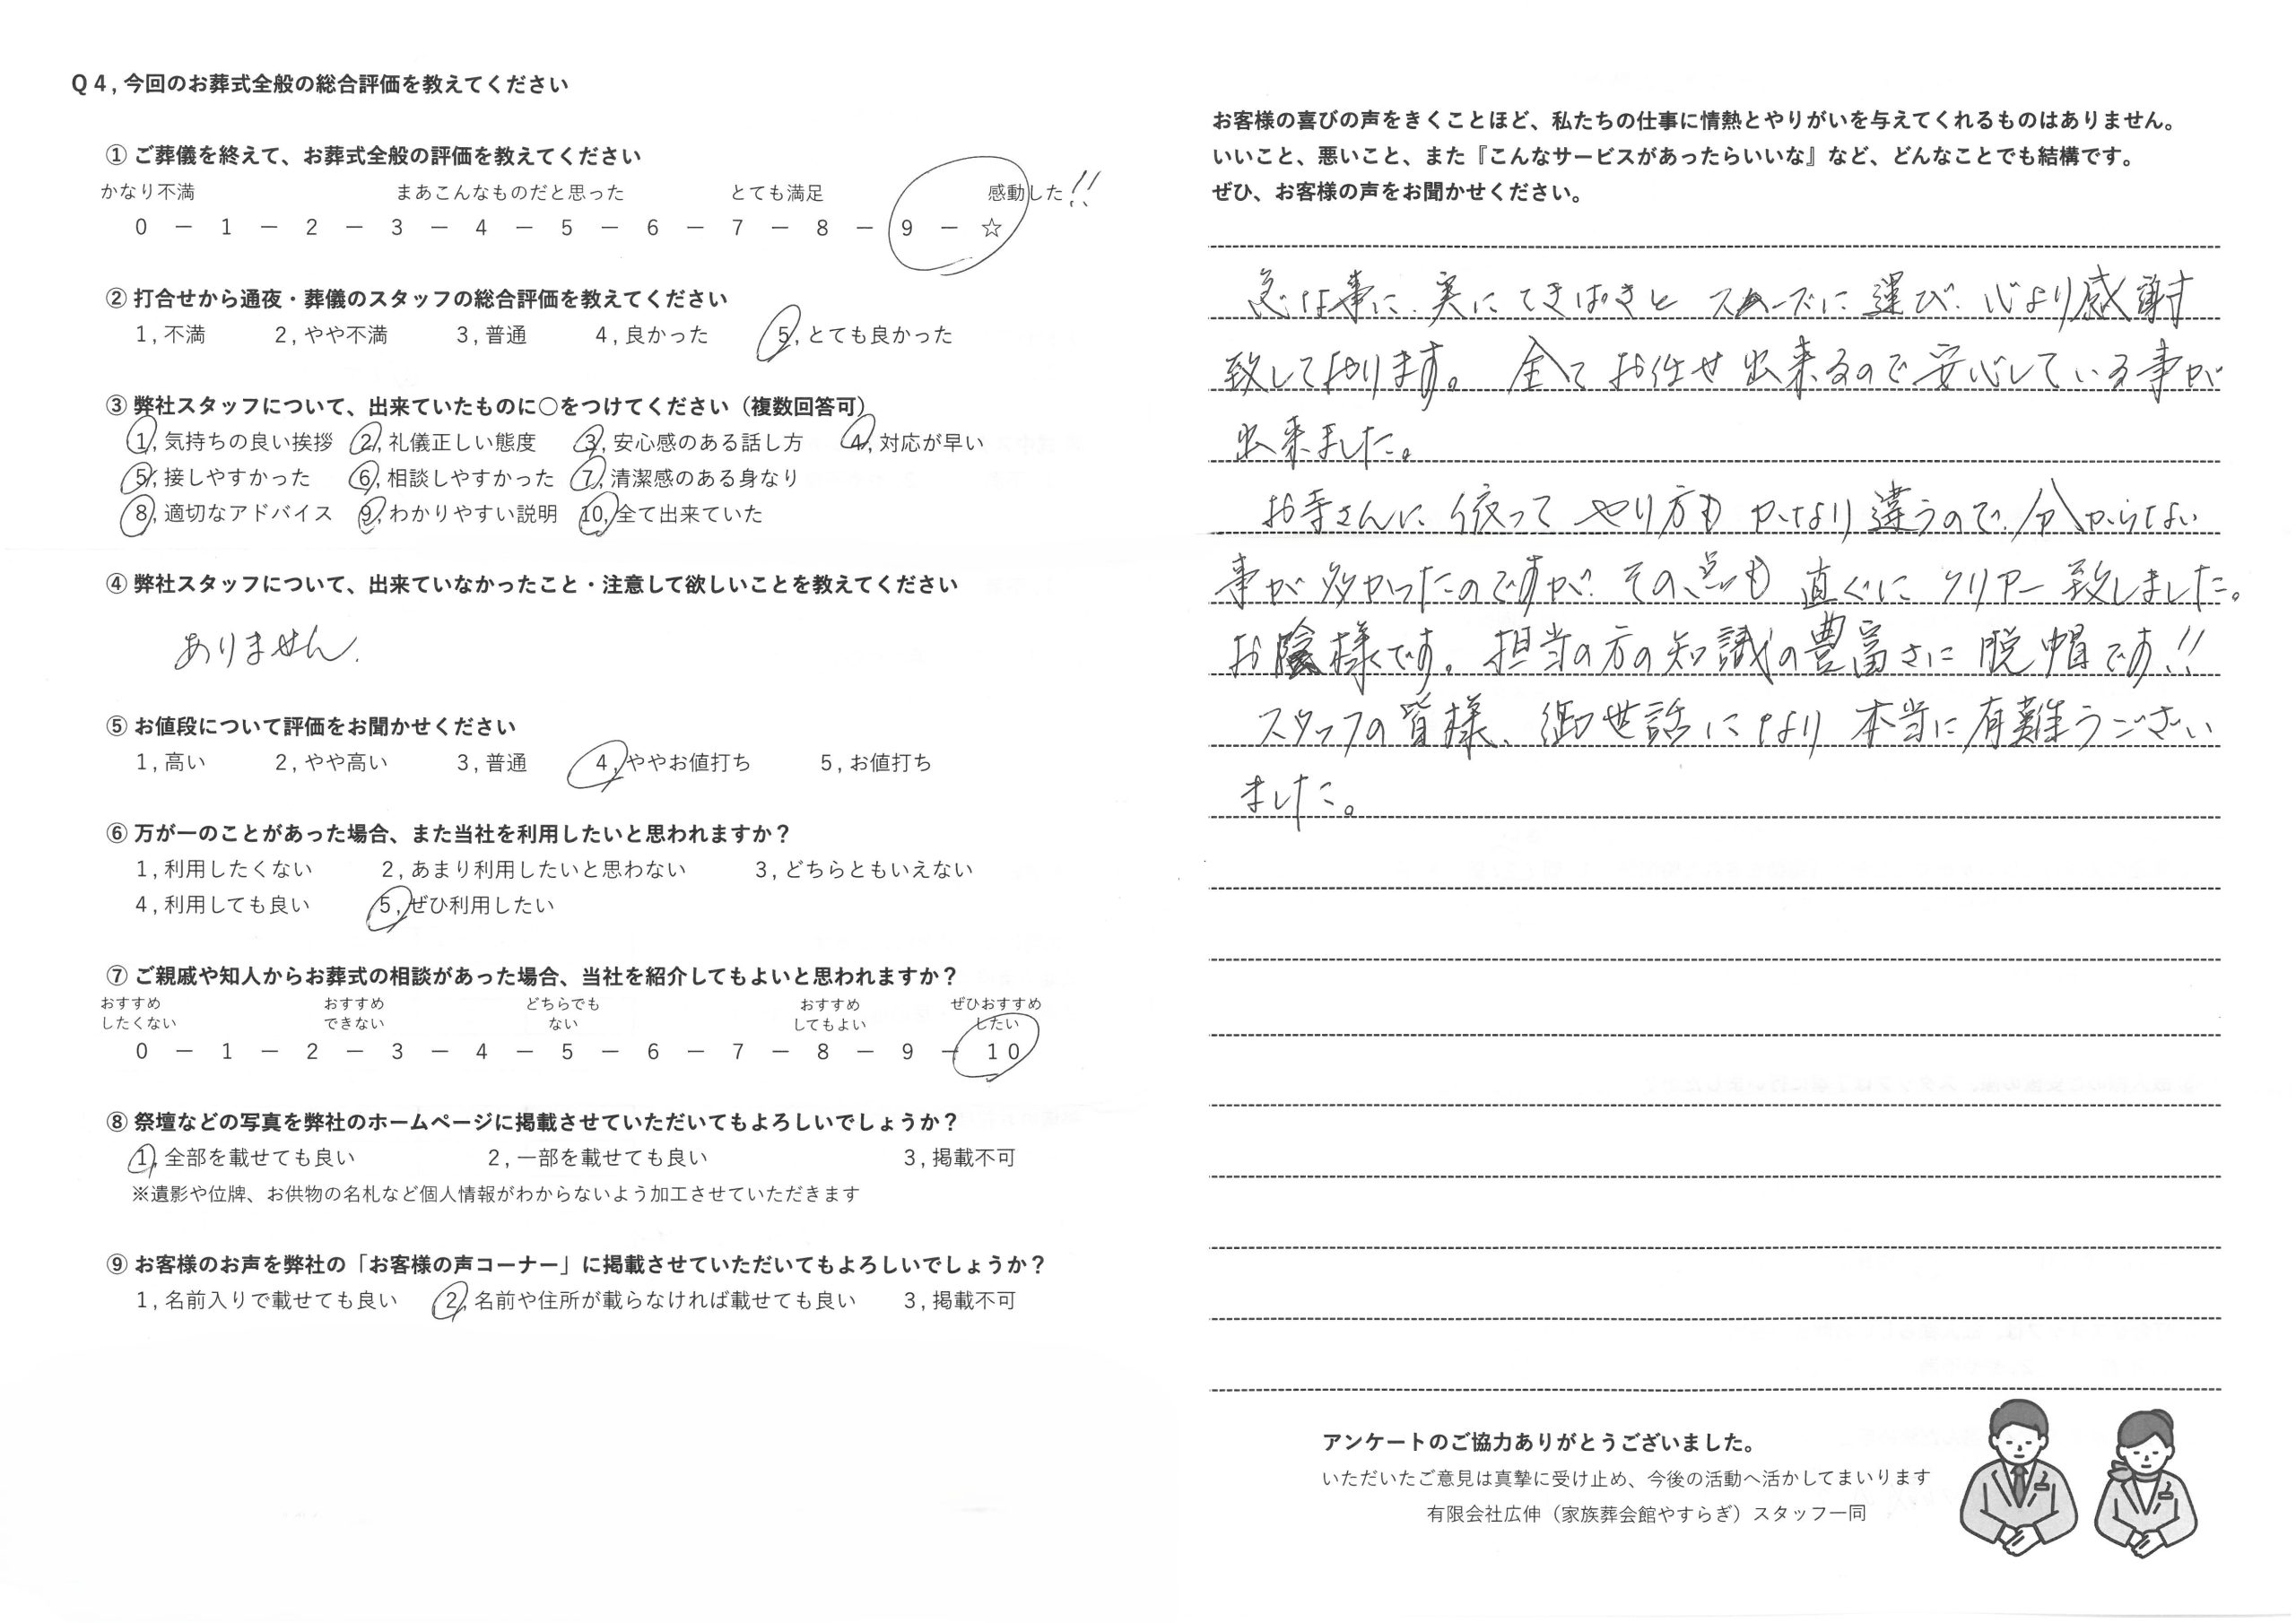 Q4, 今回のお葬式全般の総合評価を教えてください
① ご葬儀を終えて、お葬式全般の評価を教えてください
かなり不満 まあこんなものだと思った とても満足 感動した!!
0 ー 1 ー 2 ー 3 ー 4 ー 5 ー 6 ー 7 ー 8 ー 9 ー ☆
② 打合せから通夜・葬儀のスタッフの総合評価を教えてください
1, 不満 2, やや不満 3, 普通 4, 良かった 5, とても良かった
③ 弊社スタッフについて、出来ていたものに○をつけてください（複数回答可）
1, 気持ちの良い挨拶 2, 礼儀正しい態度 3, 安心感のある話し方 4, 対応が早い
5, 接しやすかった 6, 相談しやすかった 7, 清潔感のある身なり
8, 適切なアドバイス 9, わかりやすい説明 10, 全て出来ていた
④ 弊社スタッフについて、出来ていなかったこと・注意して欲しいことを教えてください
ありません.
⑤ お値段について評価をお聞かせください
1, 高い 2, やや高い 3, 普通 4, ややお値打ち 5, お値打ち
⑥ 万が一のことがあった場合、また当社を利用したいと思われますか？
1, 利用したくない 2, あまり利用したいと思わない 3, どちらともいえない
4, 利用しても良い 5, ぜひ利用したい
⑦ ご親戚や知人からお葬式の相談があった場合、当社を紹介してもよいと思われますか？
おすすめ おすすめ どちらでも おすすめ ぜひおすすめ
したくない できない ない してもよい したい
0 ー 1 ー 2 ー 3 ー 4 ー 5 ー 6 ー 7 ー 8 ー 9 ー 10
⑧ 祭壇などの写真を弊社のホームページに掲載させていただいてもよろしいでしょうか？
1, 全部を載せても良い 2, 一部を載せても良い 3, 掲載不可
※遺影や位牌、お供物の名札など個人情報がわからないよう加工させていただきます
⑨ お客様のお声を弊社の「お客様の声コーナー」に掲載させていただいてもよろしいでしょうか？
1, 名前入りで載せても良い 2, 名前や住所が載らなければ載せても良い 3, 掲載不可
お客様の喜びの声をきくことほど、私たちの仕事に情熱とやりがいを与えてくれるものはありません。
いいこと、悪いこと、また『こんなサービスがあったらいいな』など、どんなことでも結構です。
ぜひ、お客様の声をお聞かせください。
急な事に、実にてきぱきと スムーズに 運び、心より感謝
致しております。 全て お任せ 出来るので 安心している事が
出来ました。
お寺さんに 依って やり方も かなり 違うので、分からない
事が 多かったのですが、その点も 直ぐに クリアー 致しました。
お陰様です。担当の方の知識の豊富さに 脱帽です!!
スタッフの皆様、御世話になり 本当に 有難うござい
ました。
アンケートのご協力ありがとうございました。
いただいたご意見は真摯に受け止め、今後の活動へ活かしてまいります
有限会社広伸（家族葬会館やすらぎ）スタッフ一同